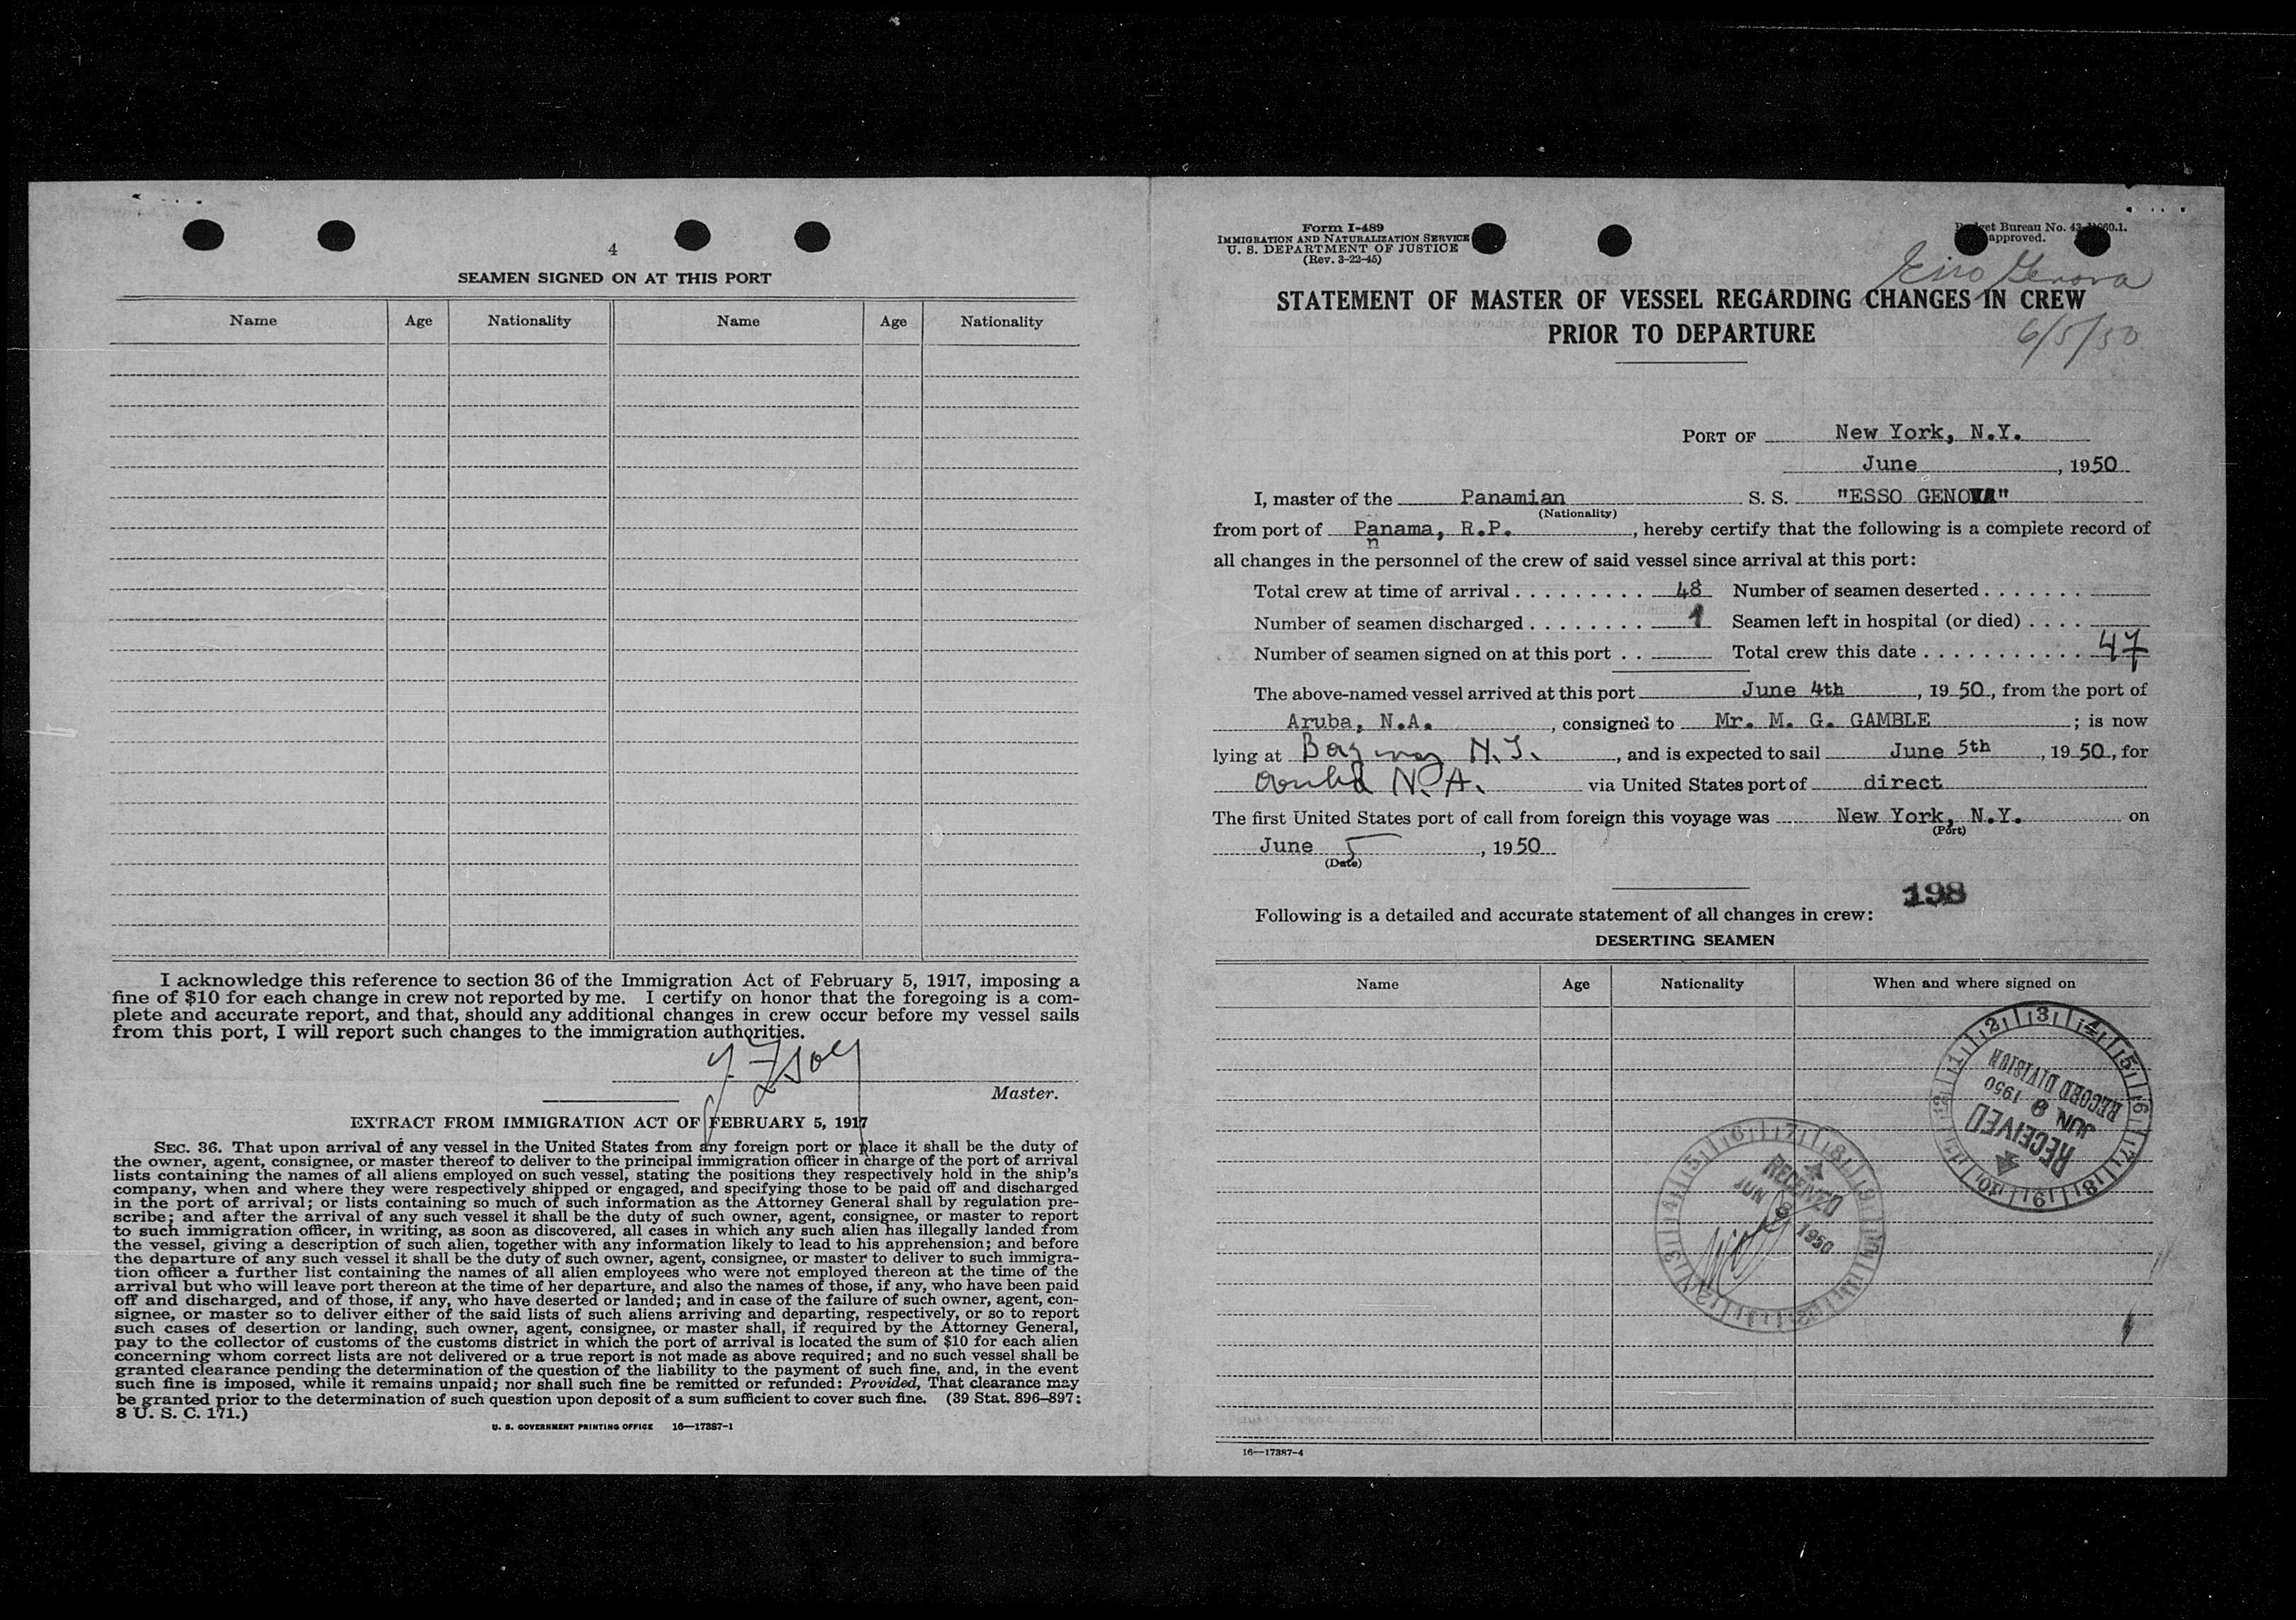 4
SEAMEN SIGNED ON AT THIS PORT
Name Age Nationality Name Age Nationality
I acknowledge this reference to section 36 of the Immigration Act of February 5, 1917, imposing a
fine of $10 for each change in crew not reported by me. I certify on honor that the foregoing is a com-
plete and accurate report, and that, should any additional changes in crew occur before my vessel sails
from this port, I will report such changes to the immigration authorities.
Master.
EXTRACT FROM IMMIGRATION ACT OF FEBRUARY 5, 1917
SEC. 36. That upon arrival of any vessel in the United States from any foreign port or place it shall be the duty of
the owner, agent, consignee, or master thereof to deliver to the principal immigration officer in charge of the port of arrival
lists containing the names of all aliens employed on such vessel, stating the positions they respectively hold in the ship's
company, when and where they were respectively shipped or engaged, and specifying those to be paid off and discharged
in the port of arrival; or lists containing so much of such information as the Attorney General shall by regulation pre-
scribe; and after the arrival of any such vessel it shall be the duty of such owner, agent, consignee, or master to report
to such immigration officer, in writing, as soon as discovered, all cases in which any such alien has illegally landed from
the vessel, giving a description of such alien, together with any information likely to lead to his apprehension; and before
the departure of any such vessel it shall be the duty of such owner, agent, consignee, or master to deliver to such immigra-
tion officer a further list containing the names of all alien employees who were not employed thereon at the time of the
arrival but who will leave port thereon at the time of her departure, and also the names of those, if any, who have been paid
off and discharged, and of those, if any, who have deserted or landed; and in case of the failure of such owner, agent, con-
signee, or master so to deliver either of the said lists of such aliens arriving and departing, respectively, or so to report
such cases of desertion or landing, such owner, agent, consignee, or master shall, if required by the Attorney General,
pay to the collector of customs of the customs district in which the port of arrival is located the sum of $10 for each alien
concerning whom correct lists are not delivered or a true report is not made as above required; and no such vessel shall be
granted clearance pending the determination of the question of the liability to the payment of such fine, and, in the event
such fine is imposed, while it remains unpaid; nor shall such fine be remitted or refunded: Provided, That clearance may
be granted prior to the determination of such question upon deposit of a sum sufficient to cover such fine. (39 Stat. 896–897;
8 U. S. C. 171.)
U. S. GOVERNMENT PRINTING OFFICE 16—17387-1
Form I-489
IMMIGRATION AND NATURALIZATION SERVICE
U. S. DEPARTMENT OF JUSTICE
(Rev. 3-22-45)
Bureau No. 43-
approved.
Genova
STATEMENT OF MASTER OF VESSEL REGARDING CHANGES IN CREW
PRIOR TO DEPARTURE
6/5/50
PORT OF New York, N.Y.
June , 1950
I, master of the Panamian S. S. "ESSO GENOVA"
(Nationality)
from port of Panama, R.P. , hereby certify that the following is a complete record of
n
all changes in the personnel of the crew of said vessel since arrival at this port:
Total crew at time of arrival . . . . . . . . . 48 Number of seamen deserted . . . . . . .
Number of seamen discharged . . . . . . . . 1 Seamen left in hospital (or died) . . . .
Number of seamen signed on at this port . . Total crew this date . . . . . . . . . . . 47
The above-named vessel arrived at this port June 4th , 19 50, from the port of
Aruba, N.A. , consigned to Mr. M. G. GAMBLE ; is now
lying at N.J. , and is expected to sail June 5th , 19 50, for
Aruba N.A. via United States port of direct
The first United States port of call from foreign this voyage was New York, N.Y. on
(Port)
June 5 , 1950
(Date)
198
Following is a detailed and accurate statement of all changes in crew:
DESERTING SEAMEN
Name Age Nationality When and where signed on
RECEIVED
JUN 8 1950
RECORD DIVISION
RECEIVED
JUN 8 1950
16—17387-4